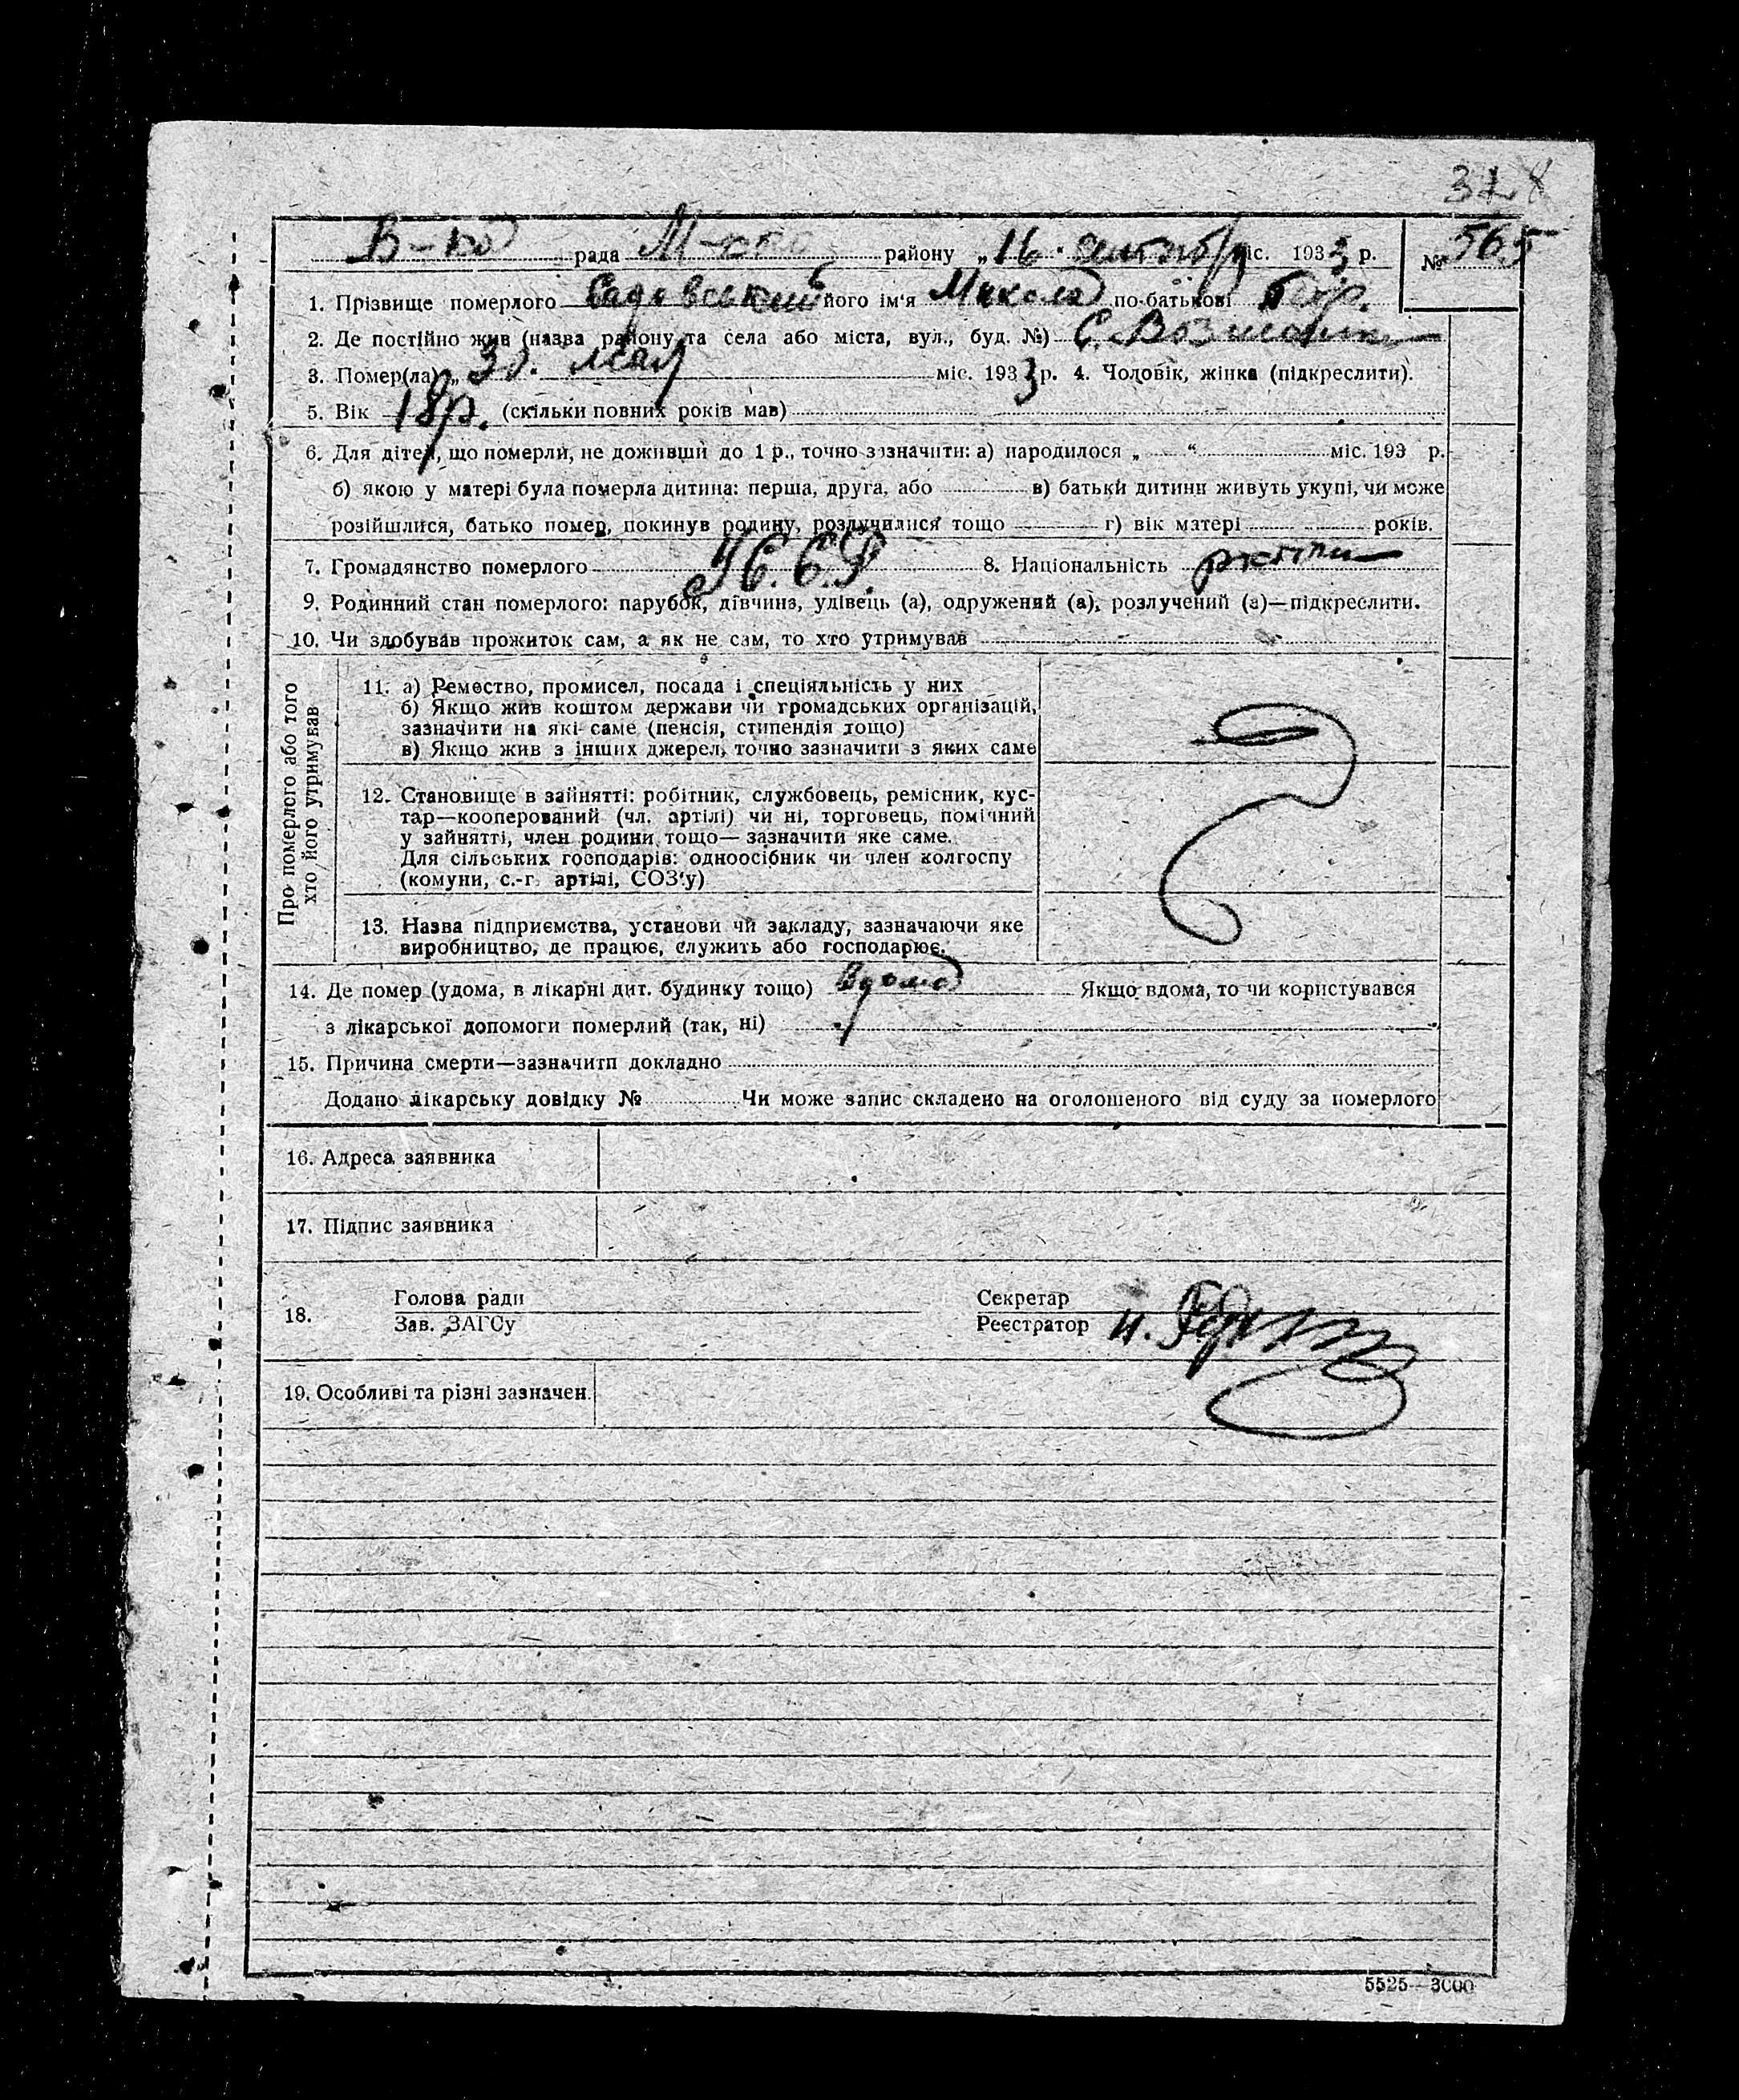 378
В-ка рада М-кого району „16" сентября міс. 1933 р. № 565
1. Прізвище померлого Садовський його ім'я Микола по-батькові
2. Де постійно жив (назва району та села або міста, вул., буд. №) С.
3. Помер(ла) „30. мая міс. 1933 р. 4. Чоловік, жінка (підкреслити).
5. Вік 18р. (скільки повних років мав)
6. Для дітей, що померли, не доживши до 1 р., точно зазначити: а) народилося „ “ міс. 193 р.
б) якою у матері була померла дитина: перша, друга, або в) батьки дитини живуть укупі, чи може
розійшлися, батько помер, покинув родину, розлучилися тощо г) вік матері років.
7. Громадянство померлого 8. Національність
9. Родинний стан померлого: парубок, дівчина, удівець (а), одружений (а), розлучений (а)—підкреслити.
10. Чи здобував прожиток сам, а як не сам, то хто утримував
Про померлого або того
хто його утримував
11. а) Ремество, промисел, посада і спеціяльність у них
б) Якщо жив коштом держави чи громадських організацій,
зазначити на які саме (пенсія, стипендія тощо)
в) Якщо жив з інших джерел, точно зазначити з яких саме
12. Становище в зайнятті: робітник, службовець, ремісник, кус-
тар—кооперований (чл. артілі) чи ні, торговець, помічний
у зайнятті, член родини тощо— зазначити яке саме.
Для сільських господарів: одноосібник чи член колгоспу
(комуни, с.-г. артілі, СОЗ'у)
13. Назва підприємства, установи чи закладу, зазначаючи яке
виробництво, де працює, служить або господарює.
14. Де помер (удома, в лікарні дит. будинку тощо) вдома Якщо вдома, то чи користувався
з лікарської допомоги померлий (так, ні)
15. Причина смерти—зазначити докладно
Додано лікарську довідку № Чи може запис складено на оголошеного від суду за померлого
16. Адреса заявника
17. Підпис заявника
18. Голова ради Секретар
Зав. ЗАГСу Реєстратор
19. Особливі та різні зазначен.
5525—3000